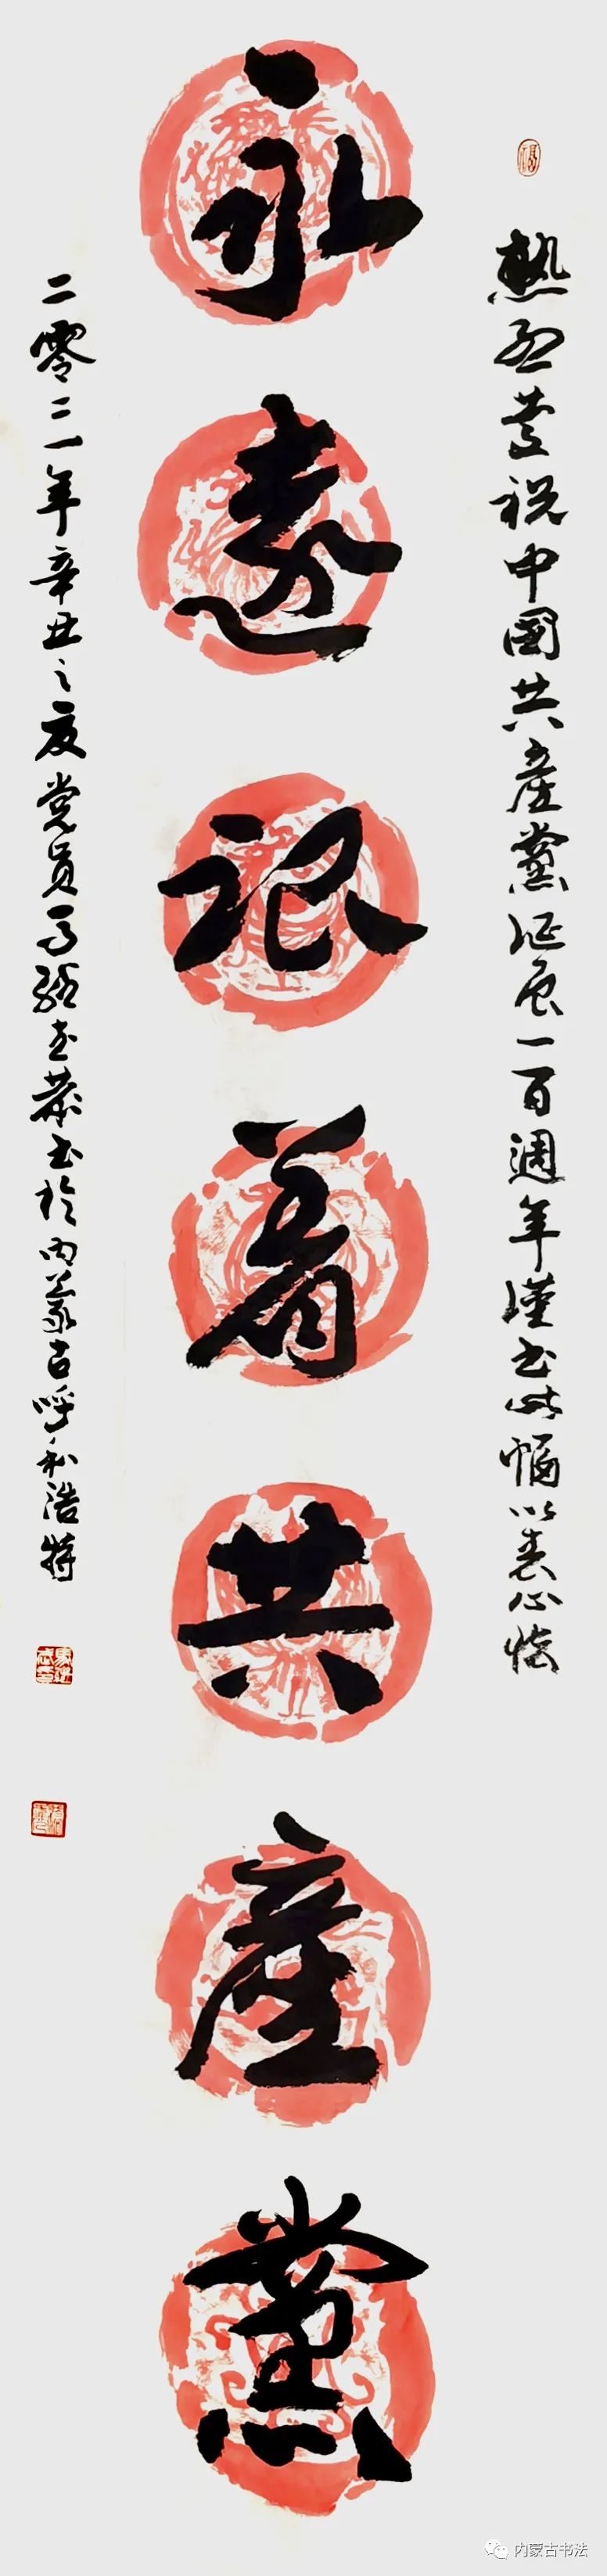 熱烈慶祝中國共產黨诞辰一百週年謹書此幅以表心懷
永遠記着共產黨
二零二一年辛丑之夏党員马恭书於内蒙古呼和浩特
内蒙古书法